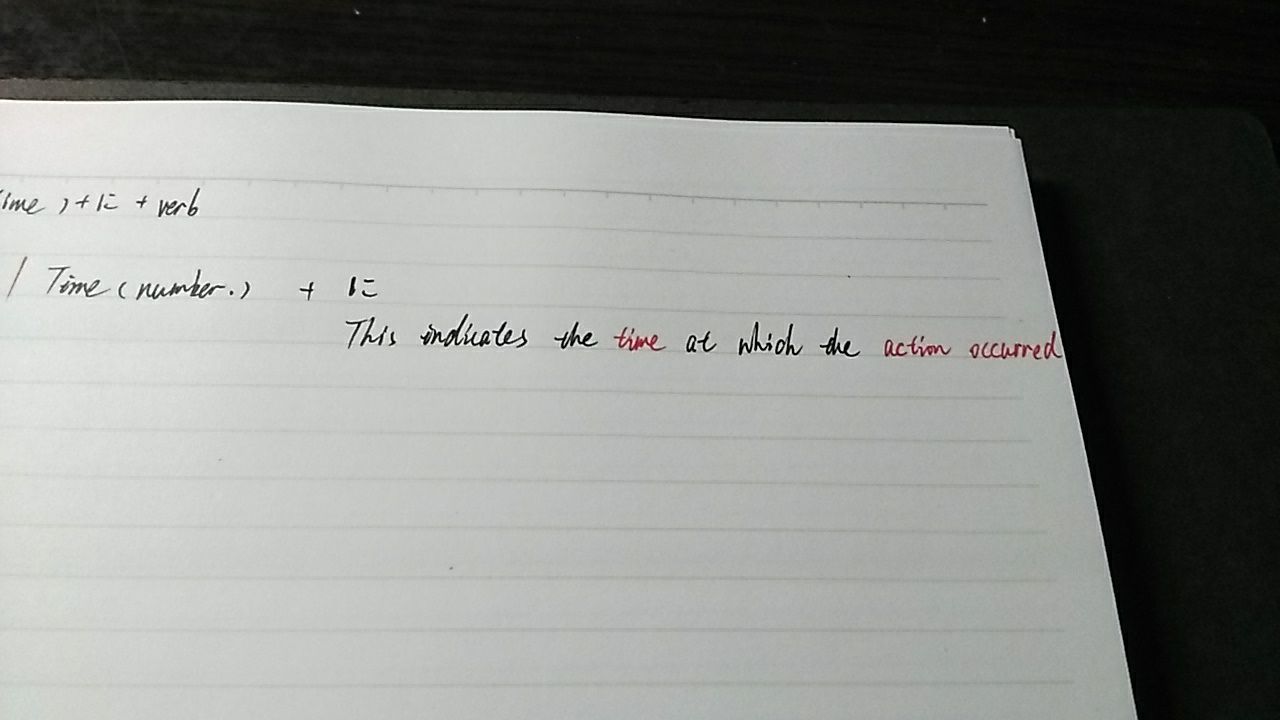 ime ) + に + verb
/ Time ( number. ) + に
This indicates the time at which the action occurred